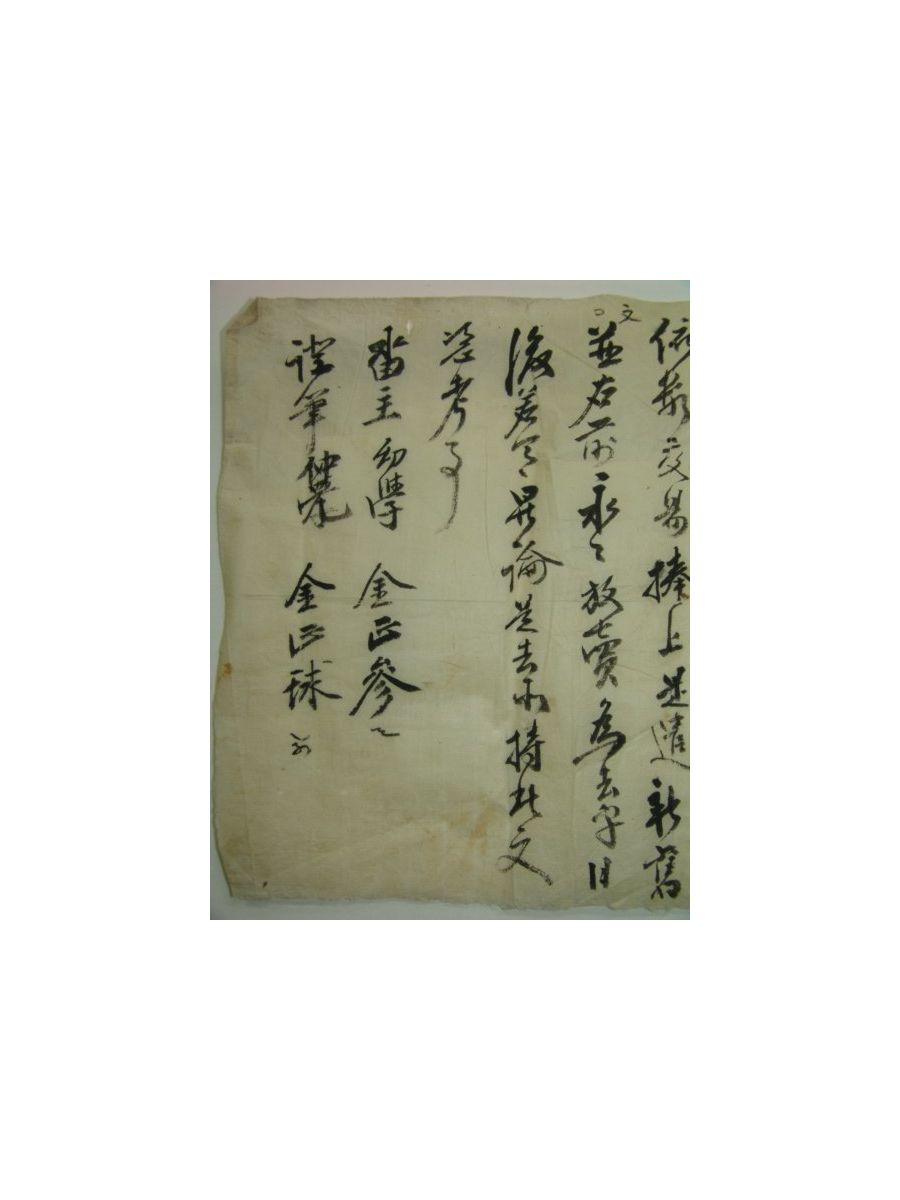 依數交易捧上是遣新舊
文□
並右前永〻放賣爲去乎日
後若有異論是去等持此文
憑考事
畓主幼學 金正參
證筆 金正球